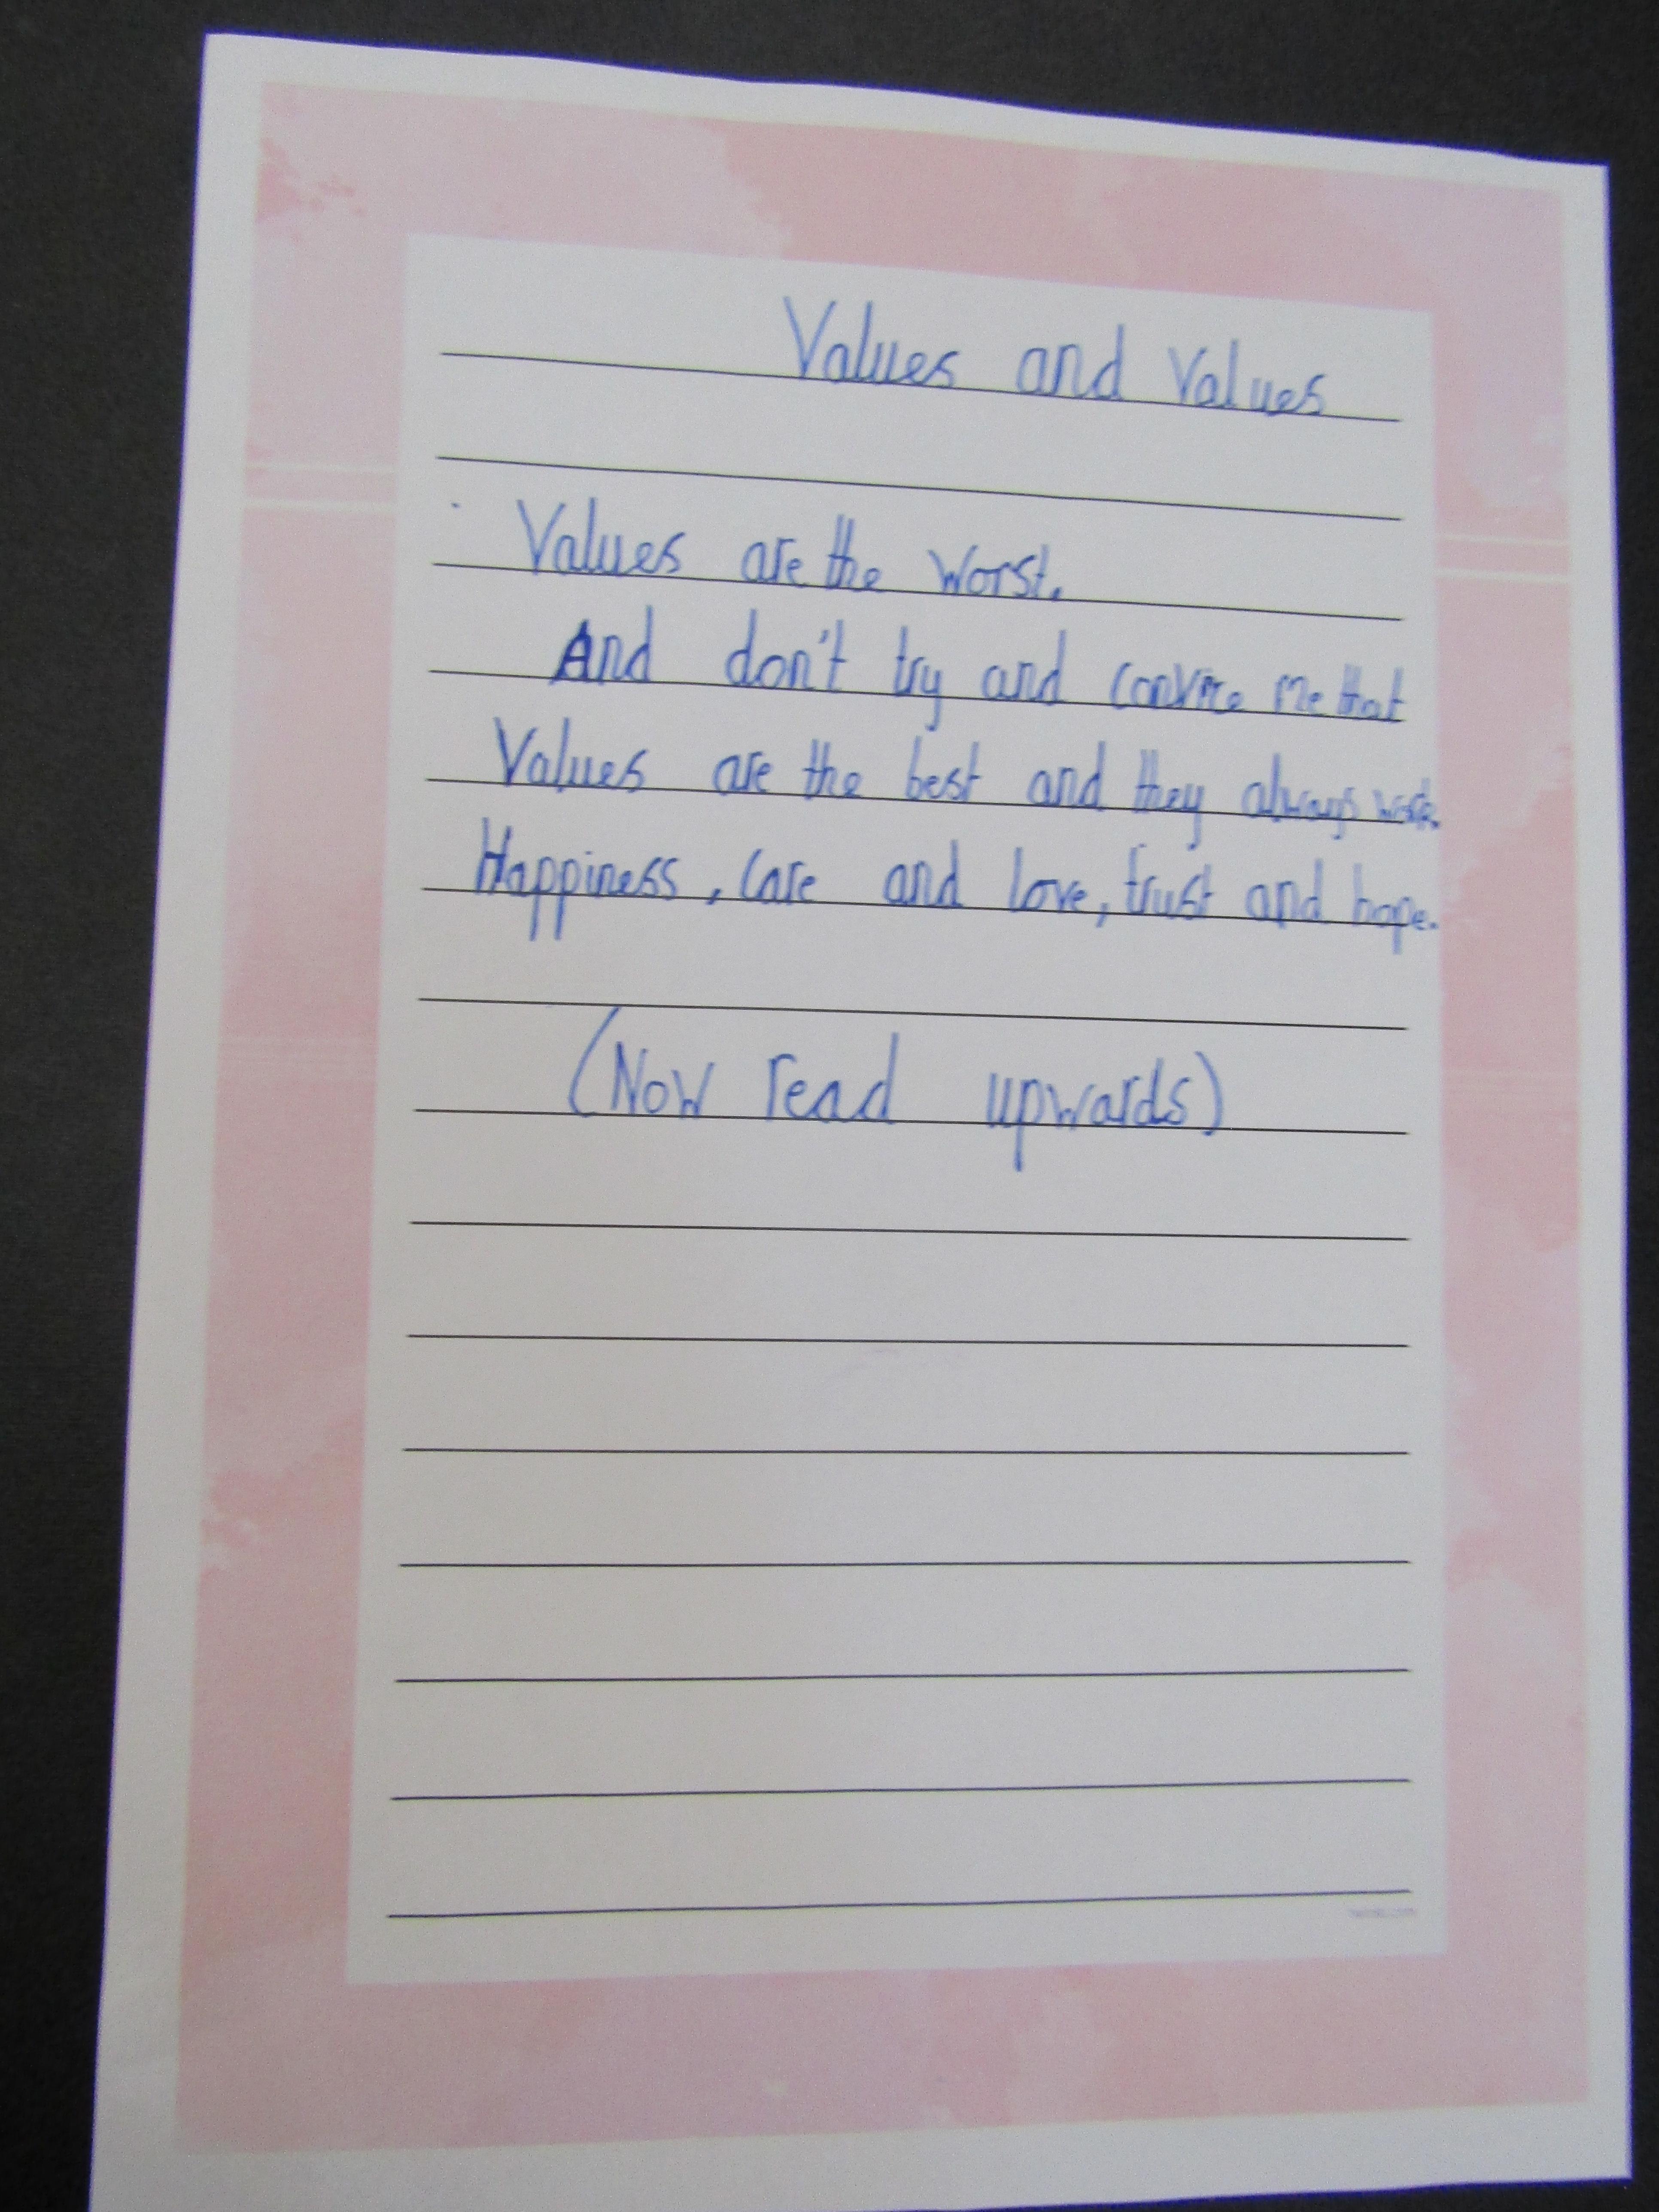 Values and Values
Values are the worst.
And don't try and convice me that
Values are the best and they always work.
Happiness, care and love, trust and hope.
(Now read upwards)